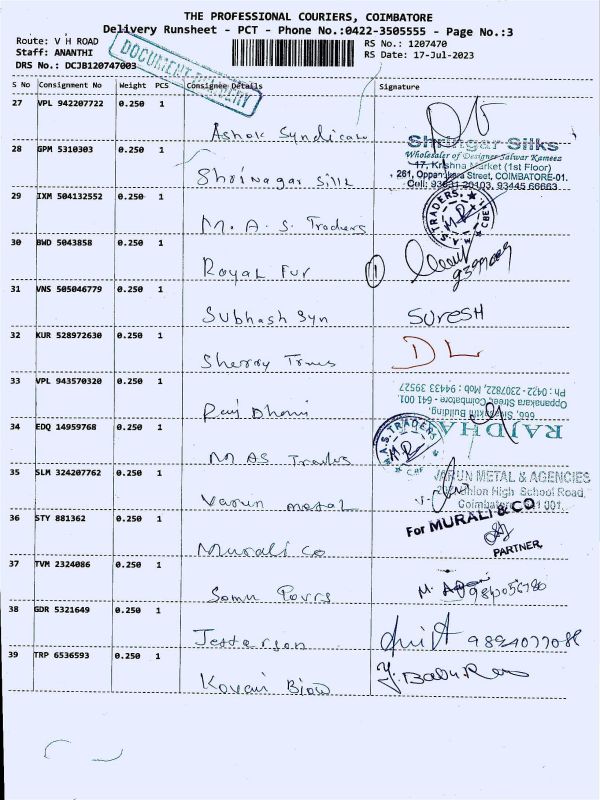 THE PROFESSIONAL COURIERS, COIMBATORE
Delivery Runsheet - PCT - Phone No.:0422-3505555 - Page No.:3
Route: V H ROAD
RS No.: 1207470
Staff: ANANTHI
RS Date: 17-Jul-2023
DRS No.: DCJB120747003
DOCUMENT DELIVERY
S No Consignment No Weight PCS Consignee Details Signature
27 VPL 942207722 0.250 1
Ashok Syndicate
28 GPM 5310303 0.250 1
Shrinagar Silk
Shringar Silks
Wholesaler of Designer Salwar Kameez
17, Krishna Market (1st Floor)
261, Oppankara Street, COIMBATORE-01.
Cell: 20103, 93445 66663
29 IXM 504132552 0.250 1
M. A. S. Traders
TRADERS
30 BWD 5043858 0.250 1
Royal Fur
1
31 VNS 505046779 0.250 1
Subhash Syn
SURESH
32 KUR 528972630 0.250 1
Sherry Trms
DL
33 VPL 943570320 0.250 1
Raj Dhani
RAJDHA
666, Building,
Oppanakara Street, Coimbatore - 641 001.
Ph : 0422 - 2307822, Mob : 94433 39527
34 EDQ 14959768 0.250 1
M AS Traders
A.S. TRADERS
35 SLM 324207762 0.250 1
Varun metal
VARUN METAL & AGENCIES
High School Road,
Coimbatore 001.
36 STY 881362 0.250 1
Murali Co
For MURALI & CO
PARTNER.
37 TVM 2324086 0.250 1
Somu
38 GDR 5321649 0.250 1
Jefferson
39 TRP 6536593 0.250 1
Kovai
Y. Babu Rao